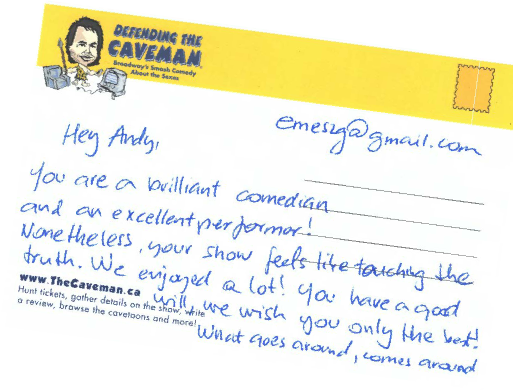 DEFENDING THE
CAVEMAN
Broadway's Smash Comedy
About the Sexes
emeszg@gmail.com
Hey Andy,
You are a brilliant comedian
and an excellent performer!
Nonetheless, your show feels like touching the
truth. We enjoyed a lot! You have a good
will, we wish you only the best!
What goes around, comes around
www.TheCaveman.ca
Hunt tickets, gather details on the show, write
a review, browse the cavetoons and more!